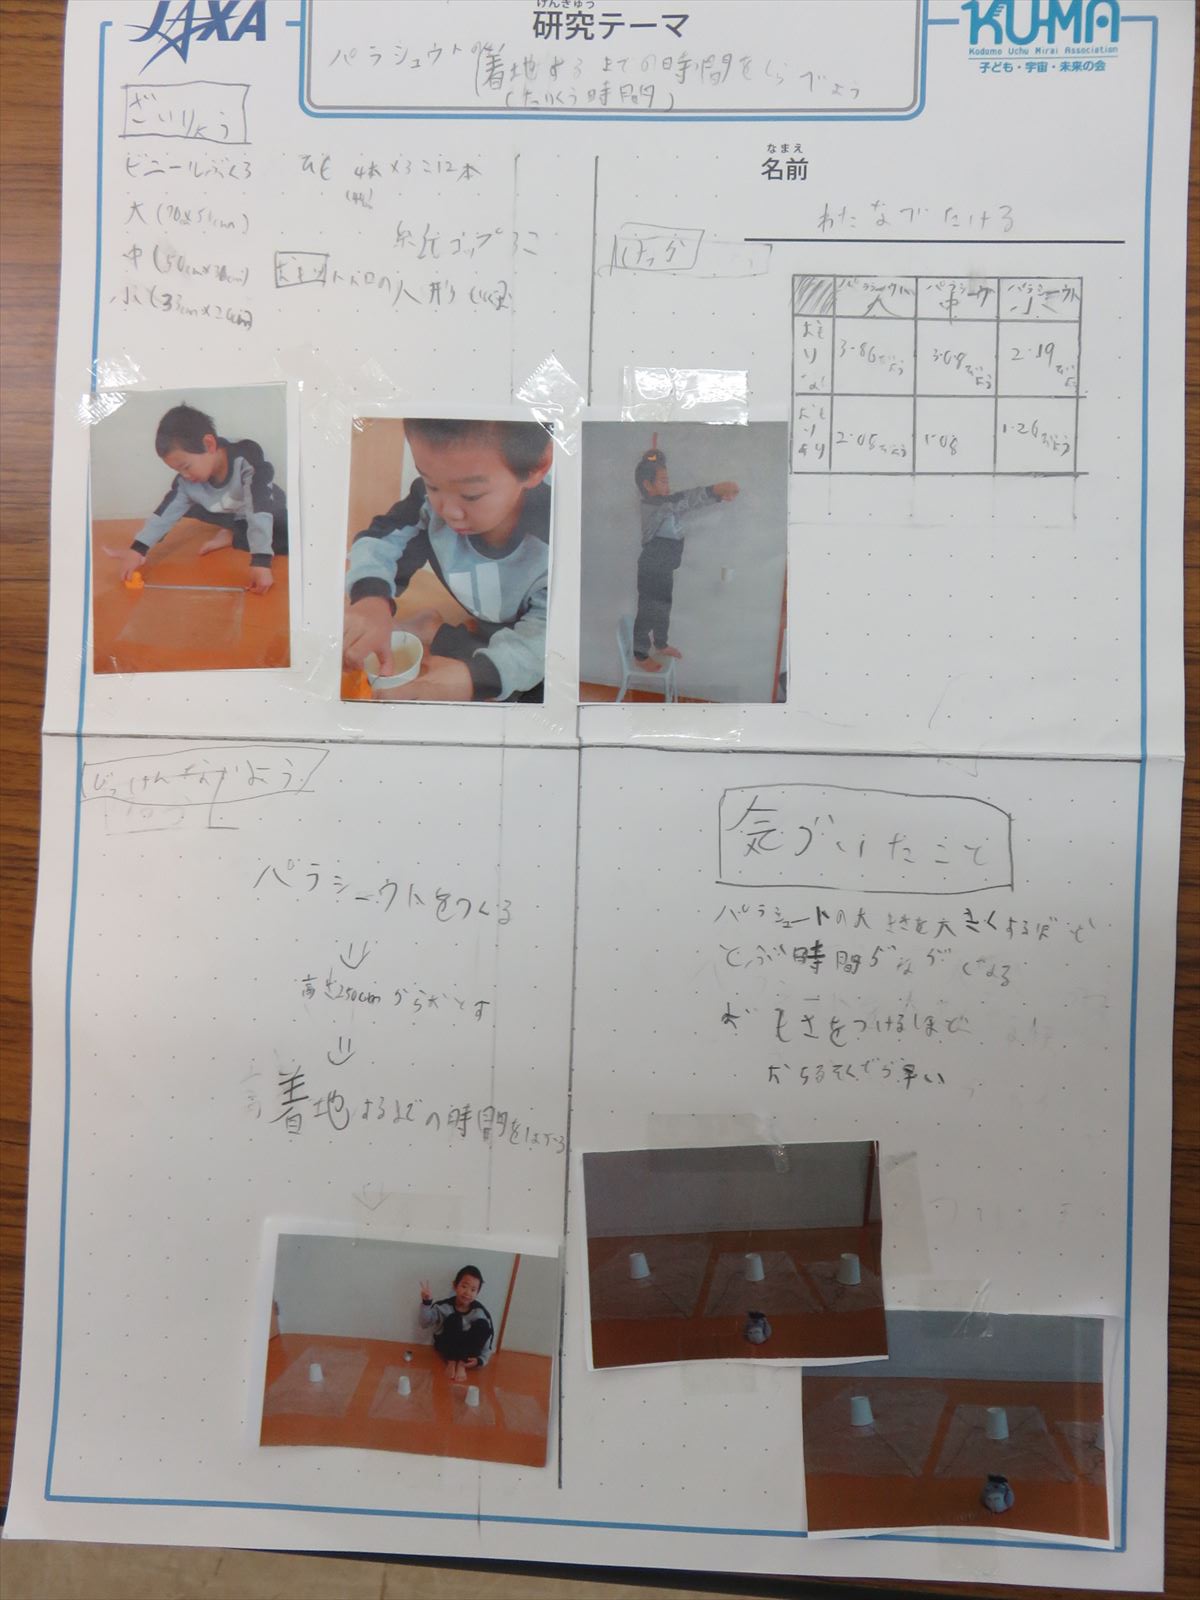 JAXA
けんきゅう
研究テーマ
KU-MA
Kodomo Uchu Mirai Association
子ども・宇宙・未来の会
パラシュウトの着地するまでの時間をしらべよう
(たいくう時間)
ざいりょう
ビニールぶくろ
大(70×51cm)
中(50cm×
小(33cm×24cm)
ひも 4本×3こ12本
紙コップ3こ
おもり トトロの人形
なまえ
名前
わたなべたける
けっか
パラシウト大 パラシーウト中 パラシーウト小
おもりなし 3.86びょう 3.09びょう 2.19びょう
おもりあり 2.05びょう 1.08 1.26びょう
じっけん
パラシーウトをつくる
⇓
高さ250cmからおとす
⇓
着地するまでの時間をはかる
気づいたこと
パラシュートの大きさを大きくするほど
とぶ時間がながくなる
おもさをつけるほど
おちるそくどが早い